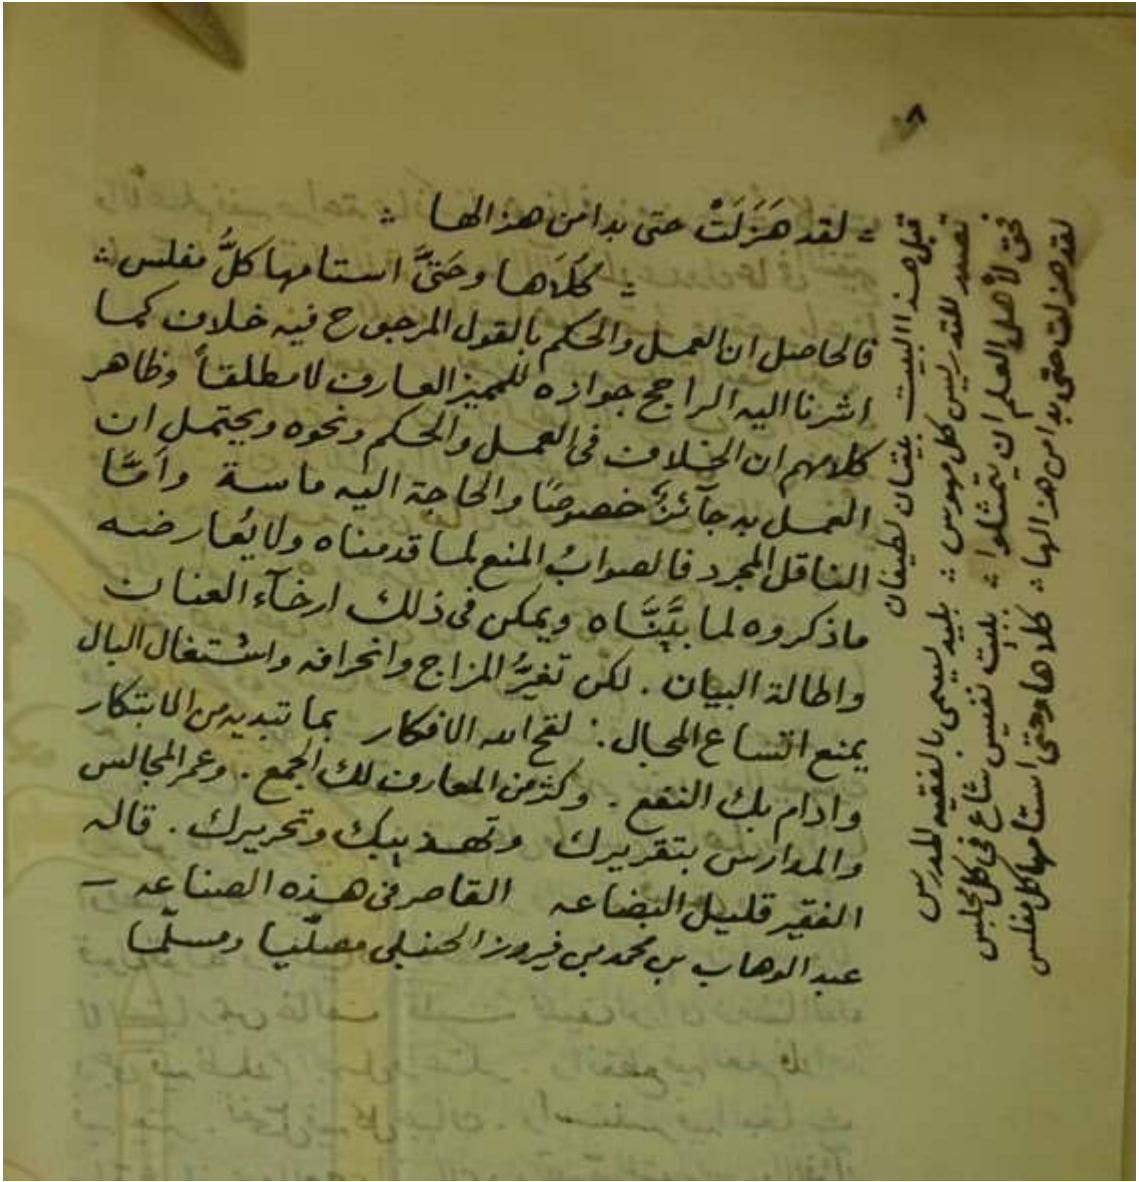 ٨
؞ لقد هَزُلَتْ حتى بدا من هزالها ؞
؞ كَلَاها وحَتَّى استامها كلُّ مفلس ؞
فالحاصل ان العمل والحكم بالقول المرجوح فيه خلاف كما
اشرنا اليه الراجح جوازه للمميز العارف لا مطلقاً وظاهر
كلامهم ان الخلاف فى العمل والحكم ونحوه ويحتمل ان
العمل به جآئز خصوصًا والحاجة اليه ماسة وأمَّا
الناقل المجرد فالصوابُ المنع لما قدمناه ولا يُعارضه
ماذكروه لما بيَّنَّاه ويمكن فى ذلك ارخآء العنان
واطالة البيان . لكن تغيُّر المزاج وانحرافه واشتغال البال
يمنع اتساع المجال : لقح الله الافكار بما تبديه من الابتكار
وادام بك النفع . وكثر من المعارف لك الجمع . وعمر المجالس
والمدارس بتقريرك وتهذيبك وتحريرك . قاله
الفقير قليل البضاعه القاصر فى هذه الصناعه –
عبد الوهاب بن محمد بن فيروز الحنبلى مصلّيا ومسلّما
قبل هذا البيت بيتان لطيفان
تصدر للتدريس كل مهوس ؞ بليد يسمى بالفقيه المدرس
فحق لأهل العلم ان يتمثلوا ؞ ببيت نفيس شاع فى كل مجلس
لقد هزلت حتى بدا من هزالها ؞ كلاها وحتى استامها كل مفلس